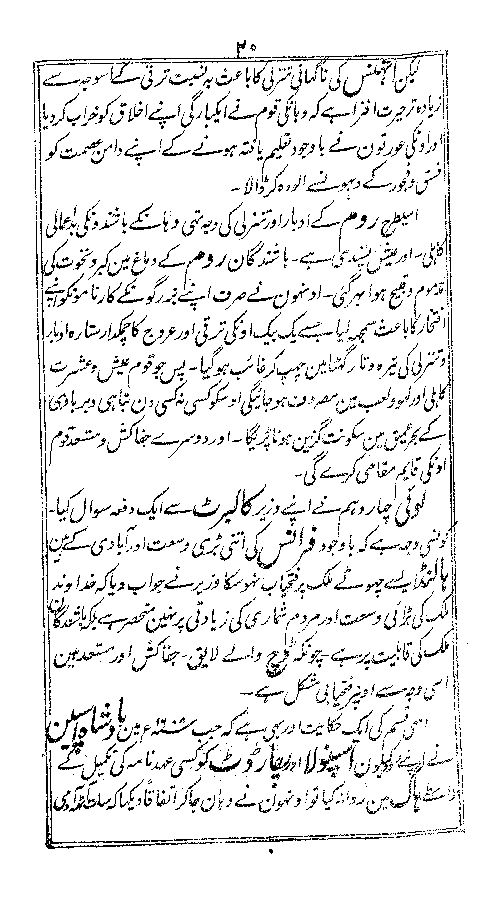 ۳۰
لیکن ایتھنس کی ناگہانی تنزلی کا باعث بہ نسبت ترقی کے اسوجہ سے
زیادہ تر حیرت افزا ہے کہ وہانکی قوم نے ایکبارگی اپنے اخلاق کو خراب کر دیا
اور اونکی عورتون نے باوجود تعلیم یافتہ ہونے کے اپنے دامن عصمت کو
فسق و فجور کے دہبونسے آلودہ کر ڈالا ۔
اسیطرح روم کے ادبار اور تنزلی کی وجہ تھی وہانکے باشندونکی بداعمالی
کاہلی ۔ اور عیش پسندی ہے ۔ باشندگان روم کے دماغ مین کبر و نخوت کی
مذموم و قبیح ہوا بہر گئی ۔ اونہون نے صرف اپنے بزرگونکے کارنامونکو اپنے
افتخار کا باعث سمجھ لیا ۔ جسسے یک بیک اونکی ترقی اور عروج کا چمکدار ستارہ ادبار
و تنزلی کی تیرہ و تار گھٹا مین چھپ کر غائب ہو گیا ۔ پس جو قوم عیش و عشرت
کاہلی اور لہو و لعب مین مصروف ہو جائیگی اوسکو کسی نہ کسی دن تباہی و بربادی
کے بحر عمیق مین سکونت گزین ہونا پڑیگا ۔ اور دوسرے جفاکش و مستعد قوم
اونکی قایم مقامی کرے گی ۔
لوئی چہاردہم نے اپنے وزیر کالبرٹ سے ایک دفعہ سوال کیا ۔
کونسی وجہ ہے کہ باوجود فرانس کی اتنی بڑی وسعت اور آبادی کے مین
ہالنڈ ایسے چھوٹے ملک پر فتحیاب نہوسکا وزیر نے جواب دیا کہ خداوند
ملک کی بڑائی وسعت اور مردم شماری کی زیادتی پر نہین منحصر ہے بلکہ باشندگان
ملک کی قابلیت پر ہے ۔ چونکہ ڈچ والے لایق ۔ جفاکش اور مستعد ہین
اسی وجہ سے اونپر فتحیابی مشکل ہے ۔
اسی قسم کی ایک حکایت اور بھی ہے کہ جب سنہ ع مین بادشاہ اسپین
نے اپنے اسپنولا اور رچارڈٹ کو کسی عہدنامہ کی تکمیل کے
واسطے ہیگ مین روانہ کیا تو اونہون نے وہان جا کر اتفاقاً دیکھا کہ سات آٹھ آدمی